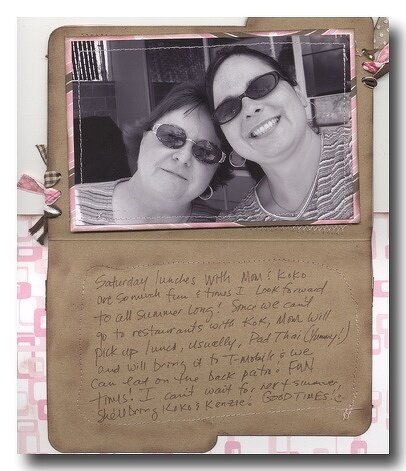 Saturday lunches with Mom & Koko
are so much fun & times I look forward
to all Summer long! Since we can't
go to restaurants with Kok, Mom will
pick up lunch, usually, Pad Thai (Yummy!)
and will bring it to T-Mobile & we
can eat on the back patio. FUN
times! I can't wait for next summer,
she'll bring Koko & Kenzie! GOOD TIMES!